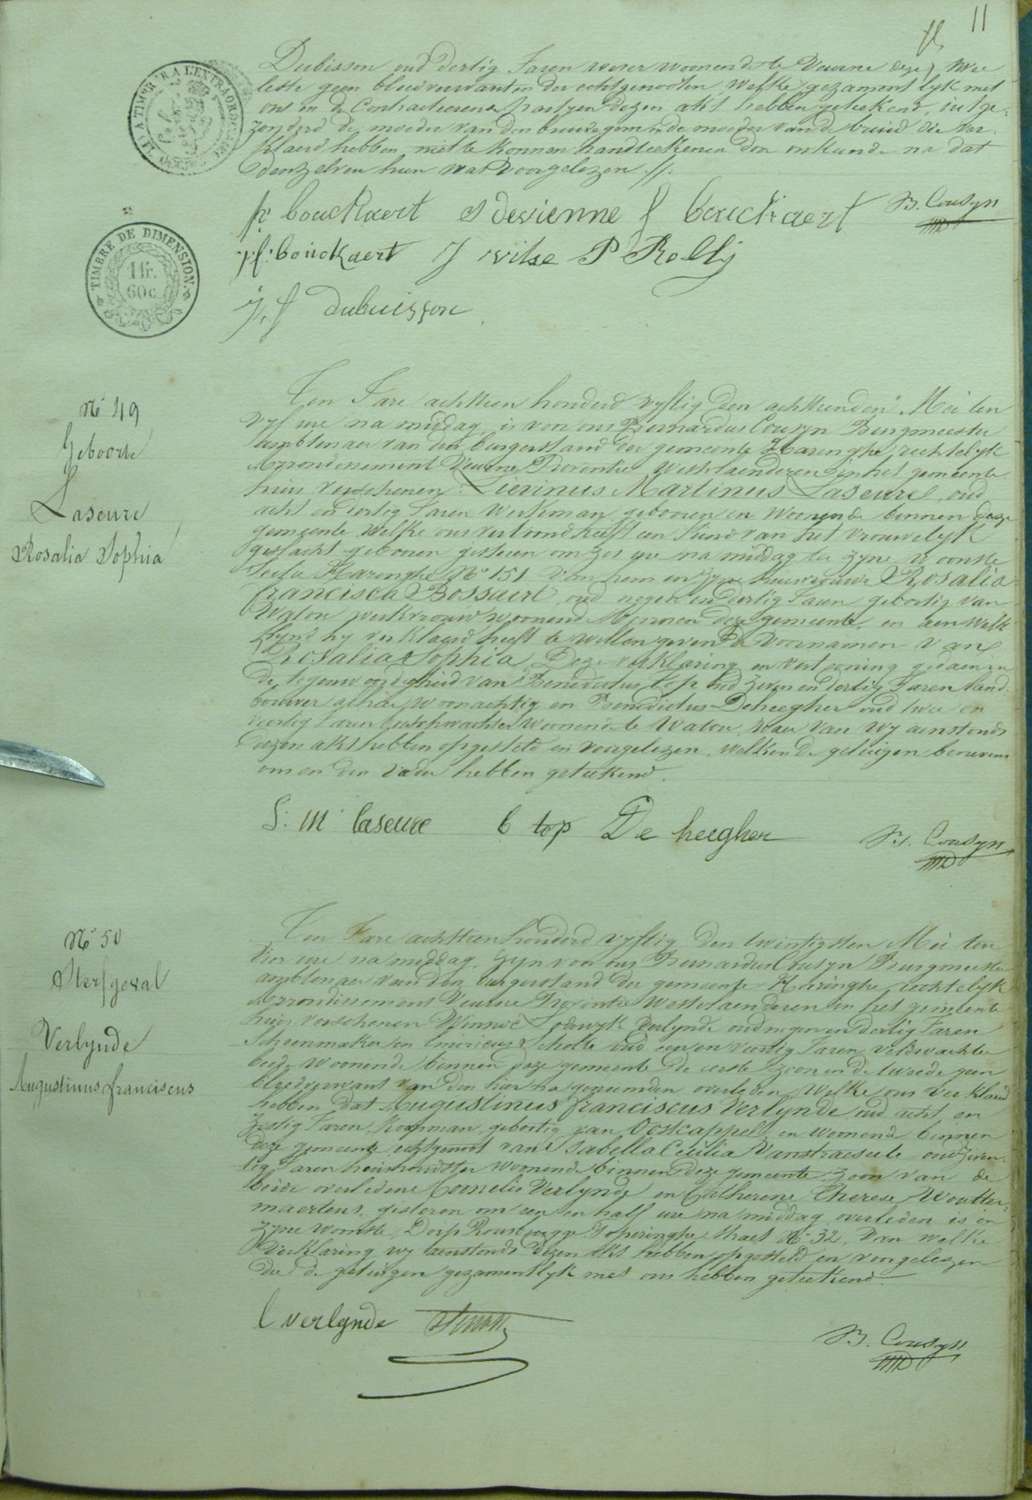 11
Dubisson oud dertig Jaren wever woonende te Veurne deze twee
leste geen bloedverwanten der echtgenooten, Welke gezamentlyk met
ons en de Contracterende partyen dezen akt hebben geteekend, uitge-
zonderd de moeder van den bruidegom en de moeder van de bruid die ver-
klaerd hebben niet te konnen handteekenen door onkunde na dat
denzelven hun was voorgelezen
A L'EXTRAORD
TIMBRE DE DIMENSION
1 fr. 60 c.
p. bouckaert s devienne f bouckaert B. Cousyn
p f. bouckaert J wilse P Rolly
J, f dubuisson
N° 49
Geboorte
Laseure
Rosalia Sophia
Ten Jare achttien honderd vyftig den achttienden Mei ten
vyf ure na middag, is voor ons Bernardus Cousyn Burgmeester
ambtenaer van den burgerstand der gemeente Haringhe, rechtelyk
Arrondissement Veurne, Provintie Westvlaenderen in het gemeente
huis verschenen Livinus Martinus Laseure, oud
acht en dertig Jaren Werkman, geboren en Woonende binnen deze
gemeente, Welke ons vertoond heeft een Kind van het vrouwelyk
geslacht geboren gisteren om zes ure na middag te zyne woonste
Haringhe N° 151 van hem en zyne huisvrouw Rosalia
francisca Bossaert, oud negen en dertig Jaren geboortig van
Watou werkvrouw woonend binnen deze gemeente, en aen welk
Kind hy verklaerd heeft te willen geven de Voornamen van
Rosalia Sophia, Deze verklaring en vertooning gedaen in
de tegenwoordigheid van Benedictus Top oud zeven en dertig Jaren land-
bouwer alhier woonachtig en Benedictus Deheegher oud twee en
veertig Jaren veldwachter Woonende te Watou, waer van wy aenstonds
dezen akt hebben opgesteld en voorgelezen, welken de getuigen benevens
ons en den vader hebben geteekend.
L: M laseure b top De heegher B. Cousyn
N° 50
Sterfgeval
Verlynde
Augustinus franciscus
Ten Jare achttien honderd vyftig den twintigsten Mei ten
vier ure na middag, zyn voor ons Bernardus Cousyn Burgmeester
ambtenaer van den burgerstand der gemeente Haringhe, rechtelyk
Arrondissement Veurne Provintie Westvlaenderen in het gemeente
huis verschenen Lodewyk Verlynde oud negen en dertig Jaren
Schoenmaker en Americus Scholte oud een en veertig Jaren veldwachter
beide woonende binnen deze gemeente de eerste zoon en de tweede geen
bloedverwant van den hier na genoemden overleden, Welke ons verklaerd
hebben dat Augustinus franciscus Verlynde oud acht en
zestig Jaren, Koopman, geboortig van Oostkappel, en woonende binnen
deze gemeente, echtgenoot van Isabella Cecilia Vanstraeseele oud zeven-
tig Jaren huishoudster woonende binnen deze gemeente, zoon van de
beide overledene Cornelis Verlynde en Catherine Therese Woutter-
maertens, gisteren om een en half ure na middag overleden is in
zyne woonste, Dorp Rousbrugge Poperinghe straet N° 32, Van welke
verklaring wy aenstonds dezen akt hebben opgesteld en voorgelezen
die de getuigen gezamentlyk met ons hebben geteekend.
l verlynde B. Cousyn